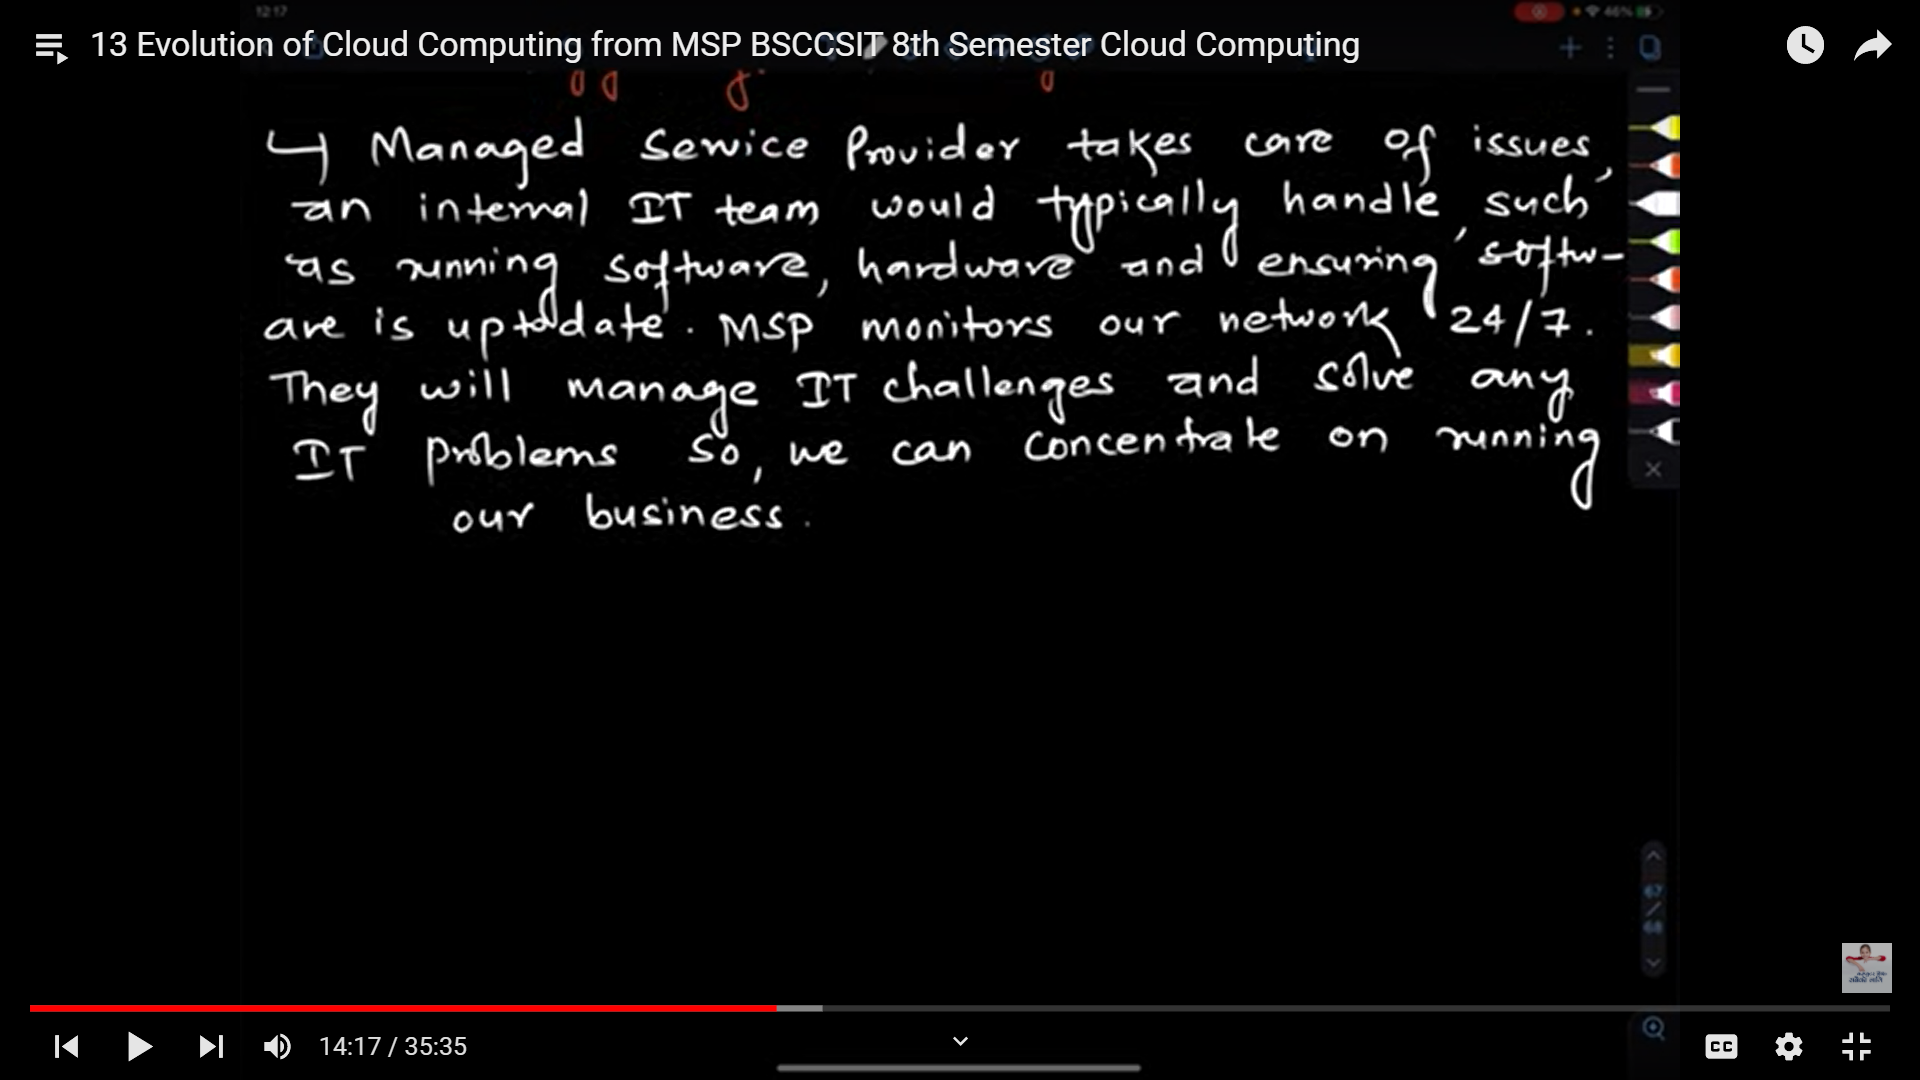 12:17
46%
13 Evolution of Cloud Computing from MSP BSCCSIT 8th Semester Cloud Computing
↳ Managed Service Provider takes care of issues,
an internal IT team would typically handle, such
as running software, hardware and ensuring softw-
are is uptodate. MSP monitors our network 24/7.
They will manage IT challenges and solve any
IT problems so, we can concentrate on running
our business.
67
/
68
14:17 / 35:35
CC